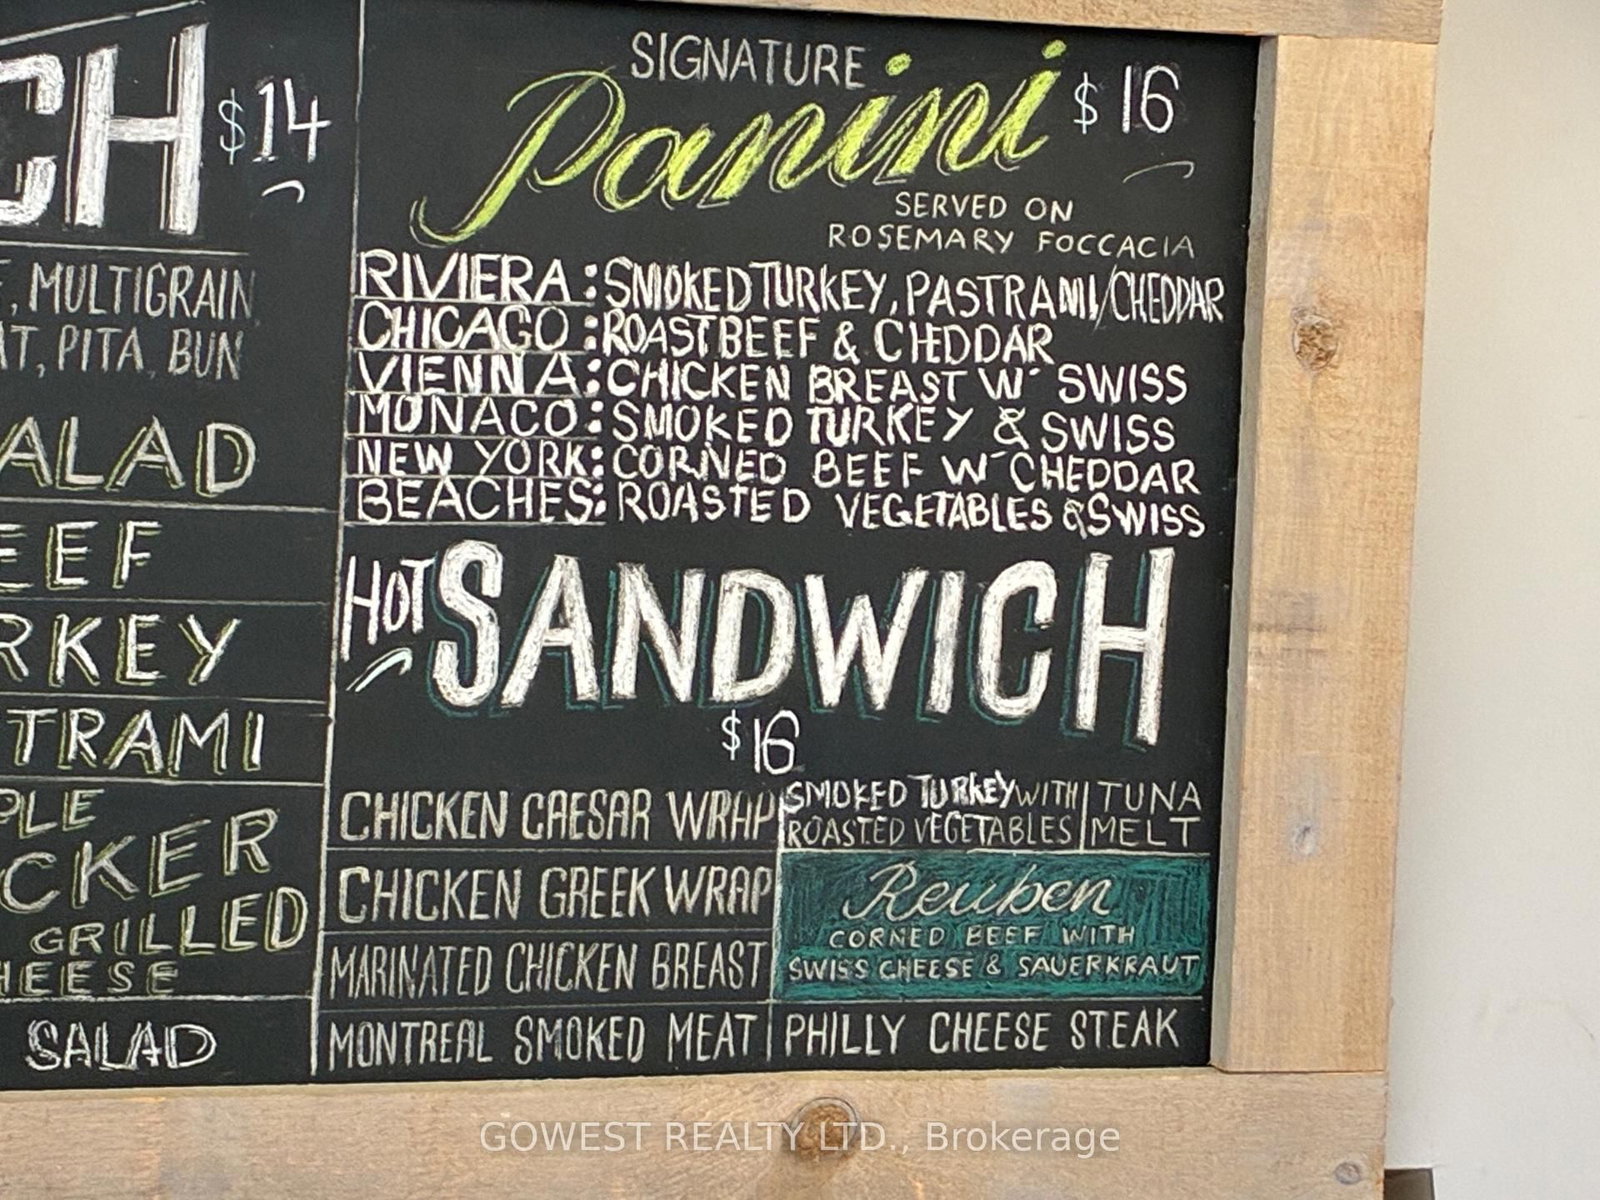 $14
MULTIGRAIN
PITA, BUN
GRILLED
SALAD
SIGNATURE
Panini $16
SERVED ON
ROSEMARY FOCCACIA
RIVIERA: SMOKED TURKEY, PASTRAMI/CHEDDAR
CHICAGO: ROAST BEEF & CHEDDAR
VIENNA: CHICKEN BREAST W/ SWISS
MONACO: SMOKED TURKEY & SWISS
NEW YORK: CORNED BEEF W/ CHEDDAR
BEACHES: ROASTED VEGETABLES & SWISS
HOT SANDWICH
$16
CHICKEN CAESAR WRAP
CHICKEN GREEK WRAP
MARINATED CHICKEN BREAST
MONTREAL SMOKED MEAT
SMOKED TURKEY WITH
ROASTED VEGETABLES
TUNA
MELT
Reuben
CORNED BEEF WITH
SWISS CHEESE & SAUERKRAUT
PHILLY CHEESE STEAK
GOWEST REALTY LTD., Brokerage